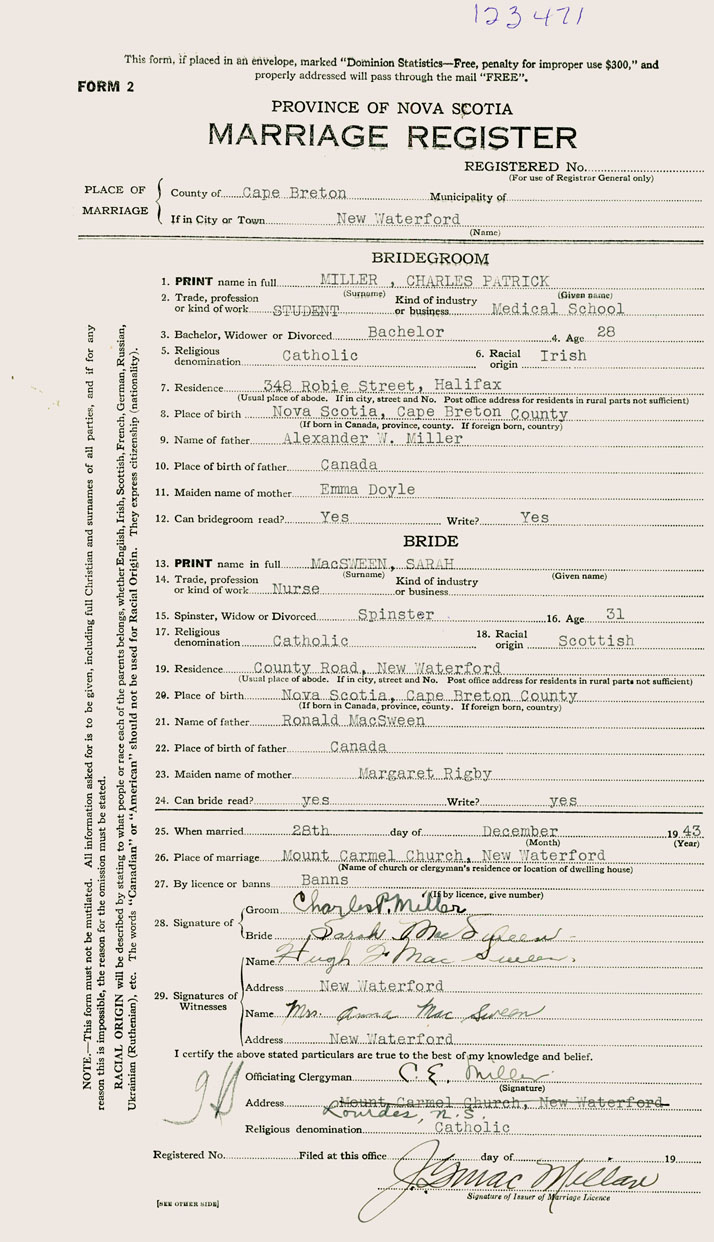 123471
This form, if placed in an envelope, marked "Dominion Statistics—Free, penalty for improper use $300," and
properly addressed will pass through the mail "FREE".
FORM 2
PROVINCE OF NOVA SCOTIA
MARRIAGE REGISTER
REGISTERED No.
(For use of Registrar General only)
PLACE OF MARRIAGE
County of Cape Breton Municipality of
If in City or Town New Waterford
(Name)
BRIDEGROOM
1. PRINT name in full MILLER , CHARLES PATRICK
(Surname) (Given name)
2. Trade, profession or kind of work STUDENT Kind of industry or business Medical School
3. Bachelor, Widower or Divorced Bachelor 4. Age 28
5. Religious denomination Catholic 6. Racial origin Irish
7. Residence 348 Robie Street, Halifax
(Usual place of abode. If in city, street and No. Post office address for residents in rural parts not sufficient)
8. Place of birth Nova Scotia, Cape Breton County
(If born in Canada, province, county. If foreign born, country)
9. Name of father Alexander W. Miller
10. Place of birth of father Canada
11. Maiden name of mother Emma Doyle
12. Can bridegroom read? Yes Write? Yes
BRIDE
13. PRINT name in full MacSWEEN, SARAH
(Surname) (Given name)
14. Trade, profession or kind of work Nurse Kind of industry or business
15. Spinster, Widow or Divorced Spinster 16. Age 31
17. Religious denomination Catholic 18. Racial origin Scottish
19. Residence County Road, New Waterford
(Usual place of abode. If in city, street and No. Post office address for residents in rural parts not sufficient)
20. Place of birth Nova Scotia, Cape Breton County
(If born in Canada, province, county. If foreign born, country)
21. Name of father Ronald MacSween
22. Place of birth of father Canada
23. Maiden name of mother Margaret Rigby
24. Can bride read? yes Write? yes
25. When married 28th day of December 1943
(Month) (Year)
26. Place of marriage Mount Carmel Church, New Waterford
(Name of church or clergyman's residence or location of dwelling house)
27. By licence or banns Banns
(If by licence, give number)
28. Signature of
Groom Charles P. Miller
Bride Sarah MacSween
29. Signatures of Witnesses
Name Hugh F MacSween.
Address New Waterford
Name Mrs. Anna MacSween
Address New Waterford
I certify the above stated particulars are true to the best of my knowledge and belief.
Officiating Clergyman C. E. Miller
(Signature)
Address Mount Carmel Church, New Waterford
Lourdes, N.S.
Religious denomination Catholic
Registered No. Filed at this office day of 19
J. G. MacMillan
Signature of Issuer of Marriage Licence
[SEE OTHER SIDE]
NOTE.—This form must not be mutilated. All information asked for is to be given, including full Christian and surnames of all parties, and if for any
reason this is impossible, the reason for the omission must be stated.
RACIAL ORIGIN will be described by stating to what people or race each of the parents belongs, whether English, Irish, Scottish, French, German, Russian,
Ukrainian (Ruthenian), etc. The words "Canadian" or "American" should not be used for Racial Origin. They express citizenship (nationality).